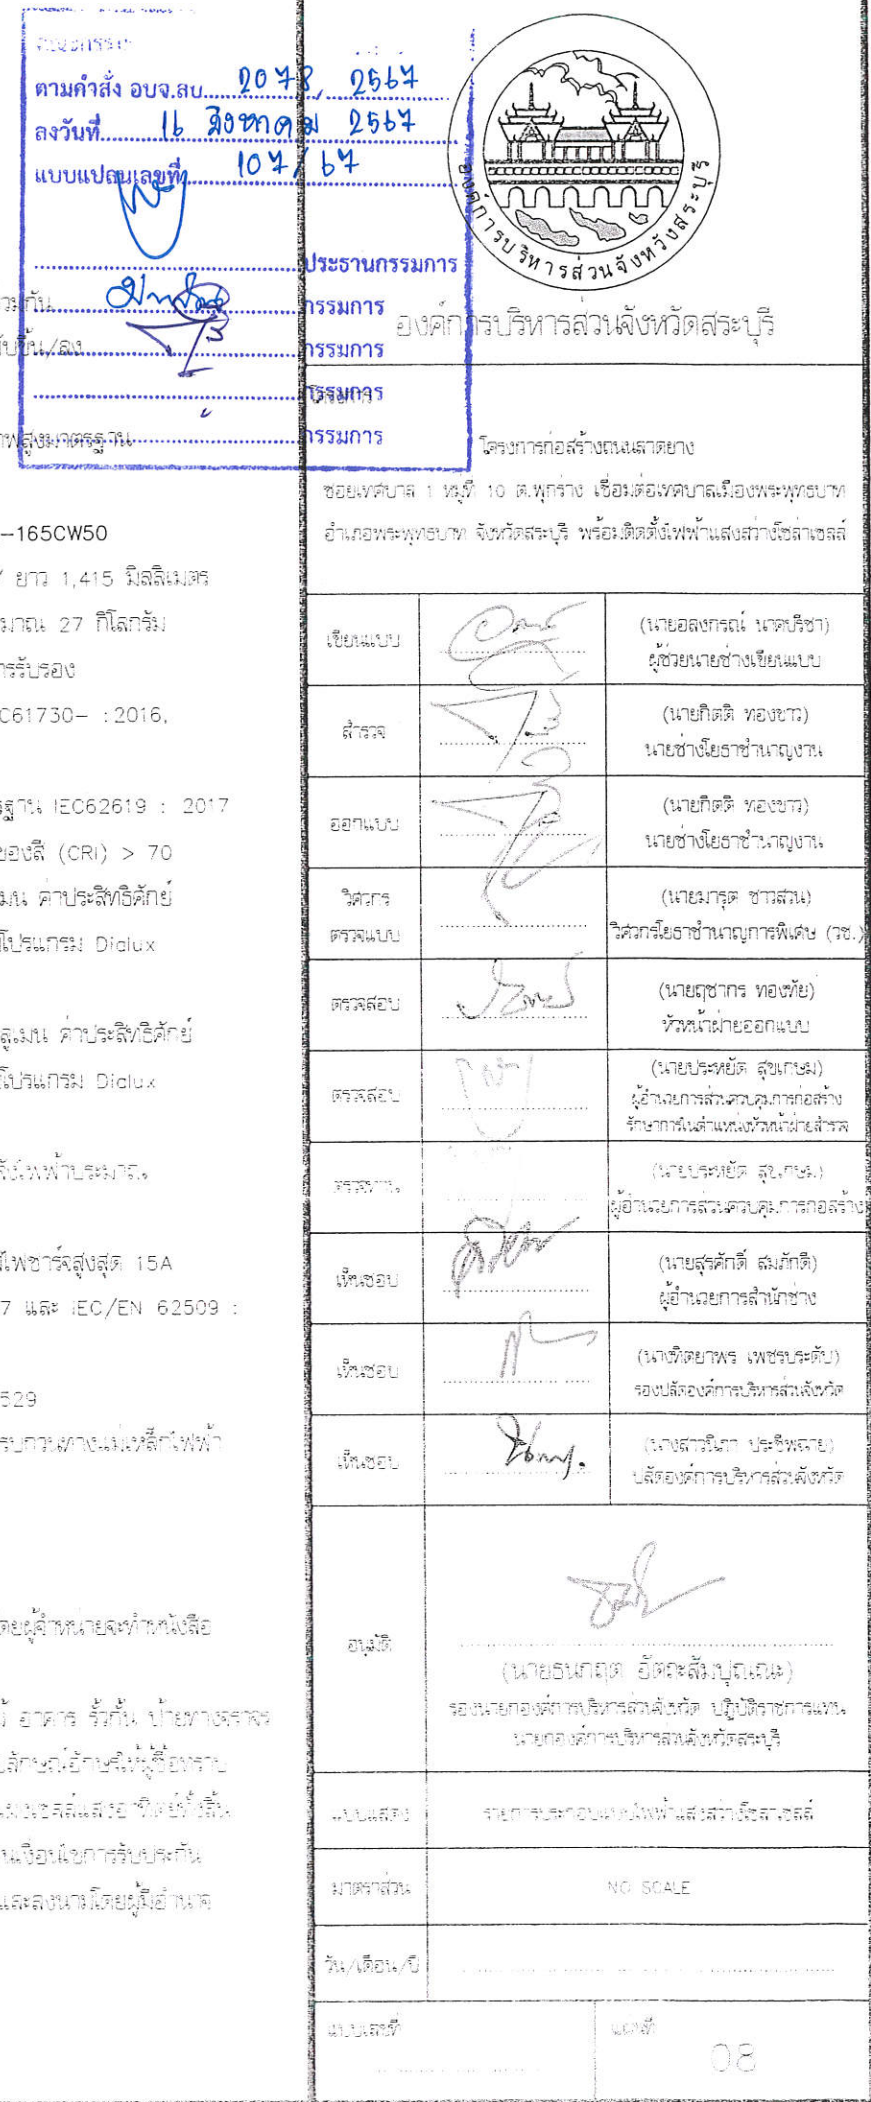 ตามคำสั่ง อบจ.สบ. 2078, 2567
ลงวันที่ 16 สิงหาคม 2567
แบบแปลนเลขที่ 107/67
ประธานกรรมการ
กรรมการ
กรรมการ
กรรมการ
กรรมการ
องค์การบริหารส่วนจังหวัดสระบุรี
องค์การบริหารส่วนจังหวัดสระบุรี
วมกัน
ขึ้น/ลง
พสูงมาตรฐาน
-165CW50
ยาว 1,415 มิลลิเมตร
มาณ 27 กิโลกรัม
การรับรอง
C61730- :2016,
รฐาน IEC62619 : 2017
ของสี (CRI) > 70
มน ค่าประสิทธิศักย์
โปรแกรม Dialux
ลูเมน ค่าประสิทธิศักย์
โปรแกรม Dialux
ไฟฟ้าประมาณ
ไฟชาร์จสูงสุด 15A
7 และ IEC/EN 62509 :
529
รบกวนทางแม่เหล็กไฟฟ้า
ดยผู้จำหน่ายจะทำหนังสือ
อาคาร รั้วกั้น ป้ายทางจราจร
ลักษณ์อักษรให้ผู้ซื้อทราบ
เซลล์แสงอาทิตย์ทั้งสิ้น
นเงื่อนไขการรับประกัน
และลงนามโดยผู้มีอำนาจ
โครงการ
โครงการก่อสร้างถนนลาดยาง
ซอยเทศบาล 1 หมู่ที่ 10 ต.พุกร่าง เชื่อมต่อเทศบาลเมืองพระพุทธบาท
อำเภอพระพุทธบาท จังหวัดสระบุรี พร้อมติดตั้งไฟฟ้าแสงสว่างโซล่าเซลล์
เขียนแบบ
(นายอลงกรณ์ นาคปรีชา)
ผู้ช่วยนายช่างเขียนแบบ
สำรวจ
(นายกิตติ ทองขาว)
นายช่างโยธาชำนาญงาน
ออกแบบ
(นายกิตติ ทองขาว)
นายช่างโยธาชำนาญงาน
วิศวกร
ตรวจแบบ
(นายมารุต ชาวสวน)
วิศวกรโยธาชำนาญการพิเศษ (วช.)
ตรวจสอบ
(นายฤชากร ทองทัย)
หัวหน้าฝ่ายออกแบบ
ตรวจสอบ
(นายประหยัด สุขเกษม)
ผู้อำนวยการส่วนควบคุมการก่อสร้าง
รักษาการในตำแหน่งหัวหน้าฝ่ายสำรวจ
ตรวจทาน
(นายประหยัด สุขเกษม)
ผู้อำนวยการส่วนควบคุมการก่อสร้าง
เห็นชอบ
(นายสุรศักดิ์ สมภักดี)
ผู้อำนวยการสำนักช่าง
เห็นชอบ
(นางทิตยาพร เพชรประดับ)
รองปลัดองค์การบริหารส่วนจังหวัด
เห็นชอบ
(นางสาวนิภา ประชีพฉาย)
ปลัดองค์การบริหารส่วนจังหวัด
อนุมัติ
(นายธนกฤต อัตถะสัมปุณณะ)
รองนายกองค์การบริหารส่วนจังหวัด ปฏิบัติราชการแทน
นายกองค์การบริหารส่วนจังหวัดสระบุรี
แบบแสดง
รายการประกอบแบบไฟฟ้าแสงสว่างโซลาเซลล์
มาตราส่วน
NO SCALE
วัน/เดือน/ปี
แบบเลขที่
แผ่นที่
08